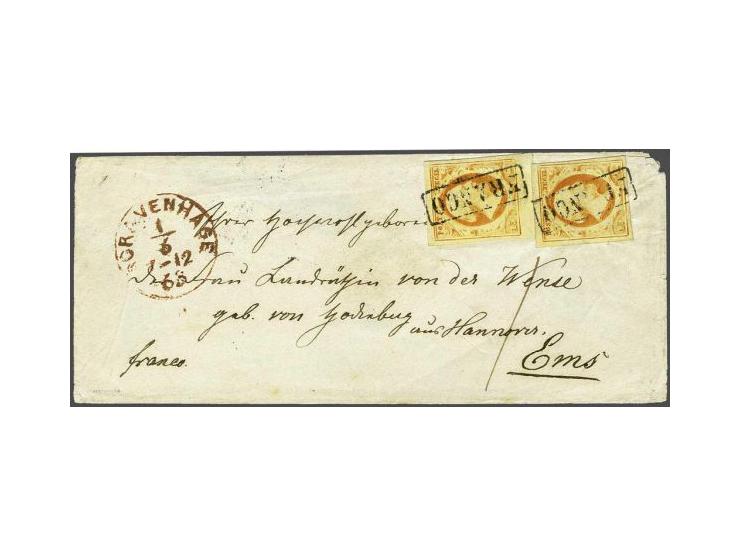 FRANCO
FRANCO
GRAVENHAGE
1
6
7-12
63
Ihrer Hochwohlgeboren
der Frau Landräthin von der Wense
geb. von Hodenberg
aus Hannover.
franco.
Ems